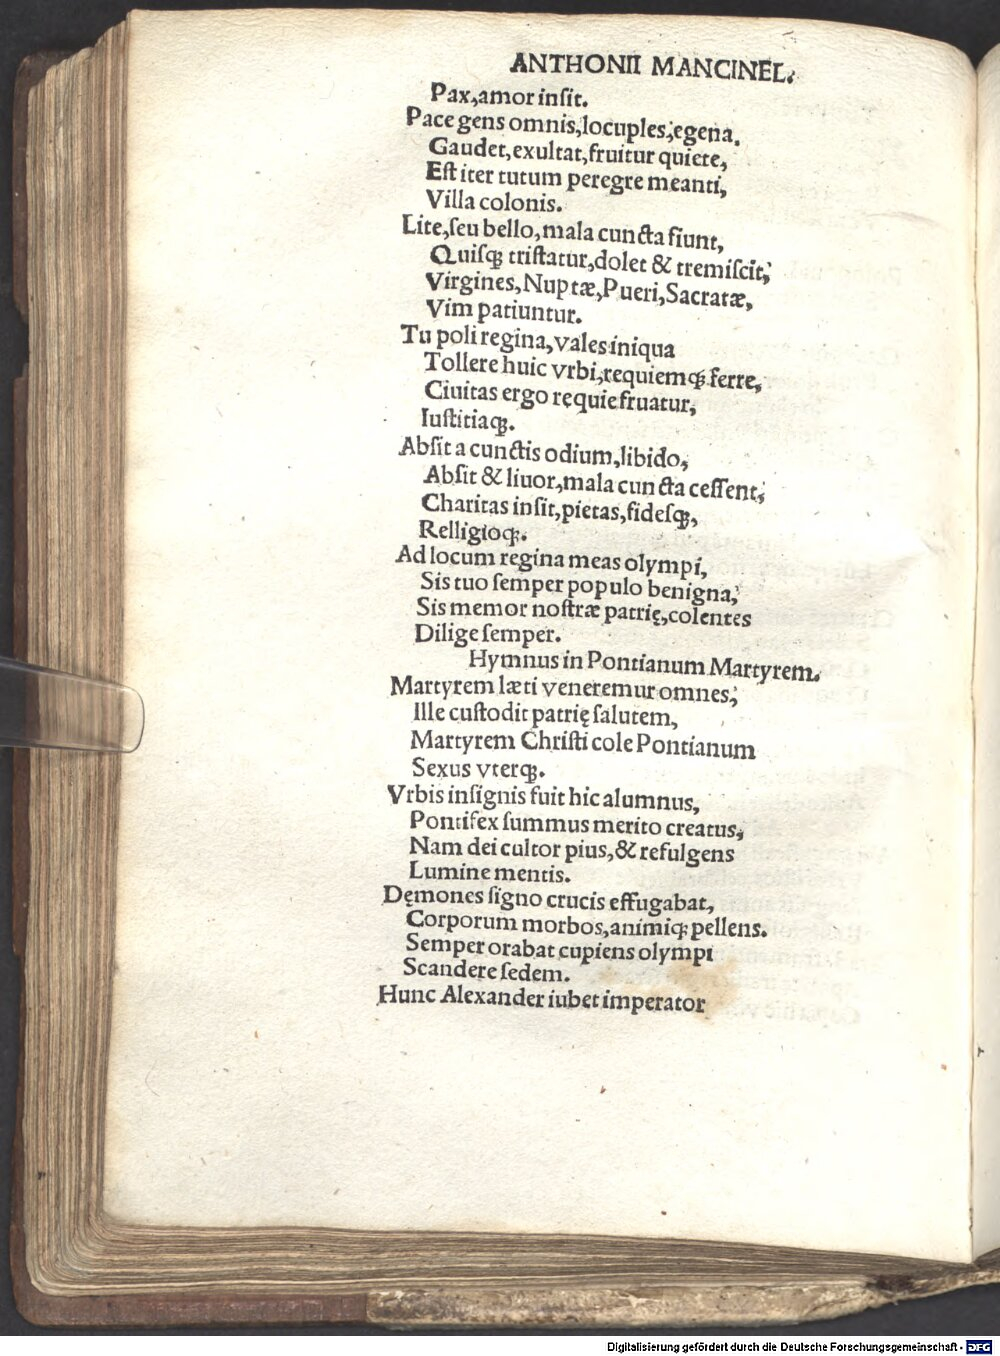 ANTHONII MANCINEL.
Pax, amor insit.
Pace gens omnis, locuples, egena.
Gaudet, exultat, fruitur quiete,
Est iter tutum peregre meanti,
Villa colonis.
Lite, seu bello, mala cuncta fiunt,
Quisqꝫ tristatur, dolet & tremiscit,
Virgines, Nuptæ, Pueri, Sacratæ,
Vim patiuntur.
Tu poli regina, vales iniqua
Tollere huic vrbi, requiemqꝫ ferre,
Ciuitas ergo requie fruatur,
Iustitiaqꝫ.
Absit a cunctis odium, libido,
Absit & liuor, mala cuncta cessent,
Charitas insit, pietas, fidesqꝫ,
Relligioqꝫ.
Ad locum regina meas olympi,
Sis tuo semper populo benigna,
Sis memor nostræ patrię, colentes
Dilige semper.
Hymnus in Pontianum Martyrem.
Martyrem læti veneremur omnes,
Ille custodit patrię salutem,
Martyrem Christi cole Pontianum
Sexus vterqꝫ.
Vrbis insignis fuit hic alumnus,
Pontifex summus merito creatus,
Nam dei cultor pius, & refulgens
Lumine mentis.
Dęmones signo crucis effugabat,
Corporum morbos, animiqꝫ pellens.
Semper orabat cupiens olympi
Scandere sedem.
Hunc Alexander iubet imperator
Digitalisierung gefördert durch die Deutsche Forschungsgemeinschaft - DFG